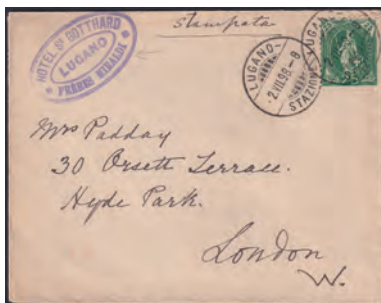 HOTEL St GOTTHARD
LUGANO
FRÈRES
stampata
LUGANO-
2.VII.98.-8
STAZIONE
LUGANO
Mrs Padday
30 Orsett Terrace.
Hyde Park.
London
W.